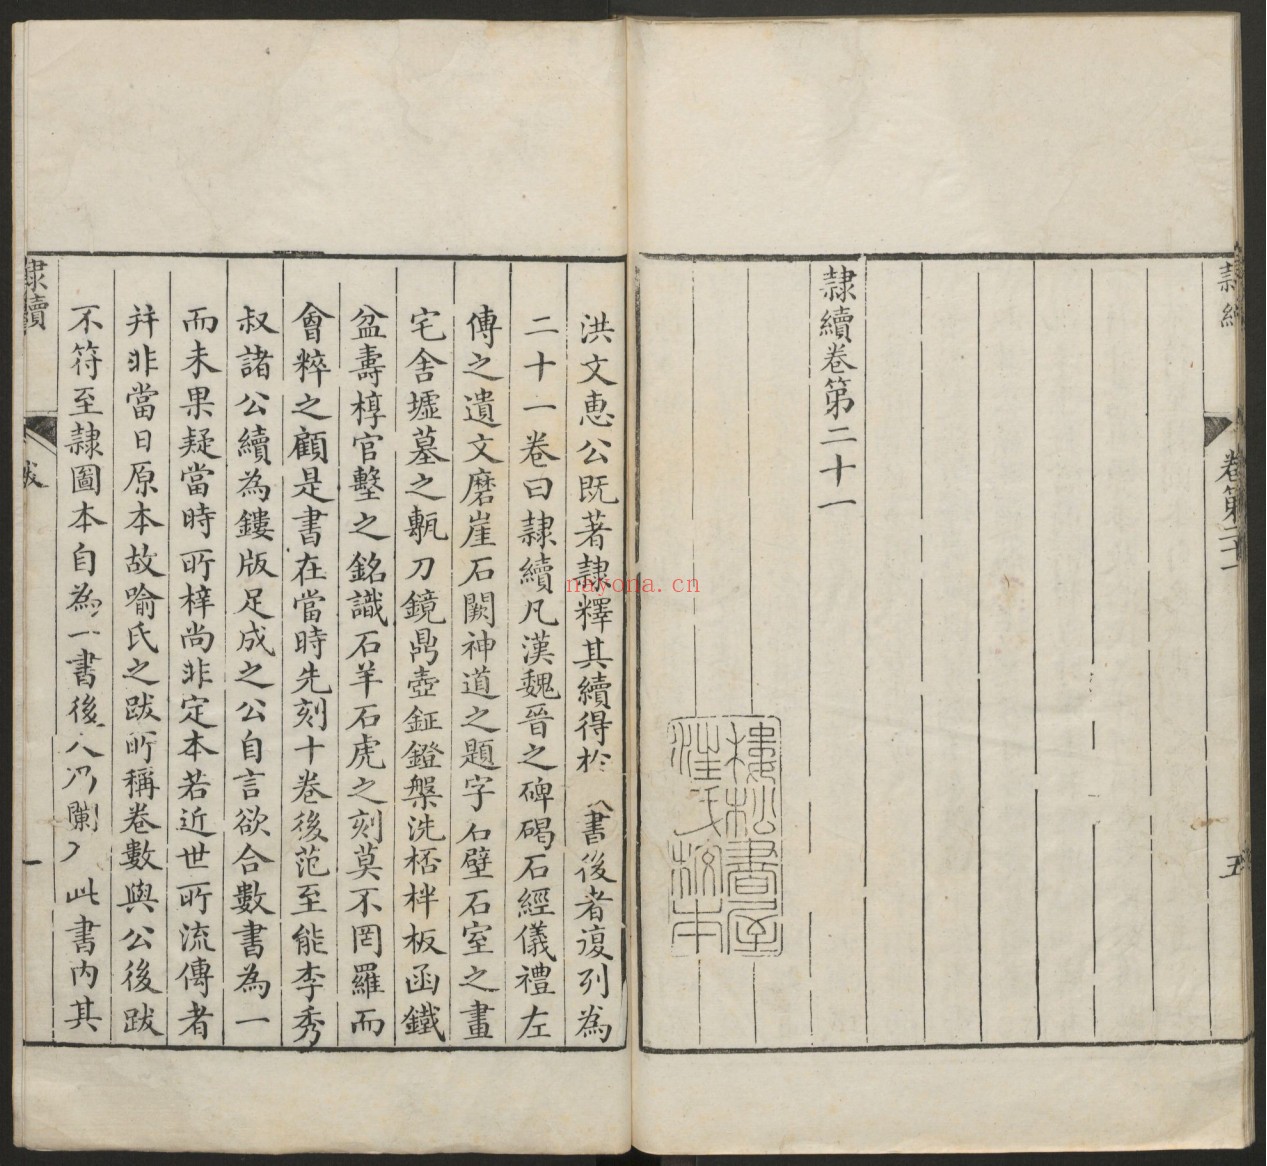 隸續
卷第二十一
五
隸續卷第二十一
樓松書屋
汪氏校本
洪文惠公既著隸釋其續得於書後者復列為
二十一卷曰隸續凡漢魏晉之碑碣石經儀禮左
傳之遺文磨崖石闕神道之題字石壁石室之畫
宅舍墟墓之甎刀鏡鼎壺鉦鐙槃洗桮柈板函鐵
盆壽椁官墼之銘識石羊石虎之刻莫不罔羅而
會粹之顧是書在當時先刻十卷後范至能李秀
叔諸公續為鏤版足成之公自言欲合數書為一
而未果疑當時所梓尚非定本若近世所流傳者
并非當日原本故喻氏之跋所稱卷數與公後跋
不符至隸圖本自為一書後人乃闌入此書內其
隸續
跋
一
nayona.cn